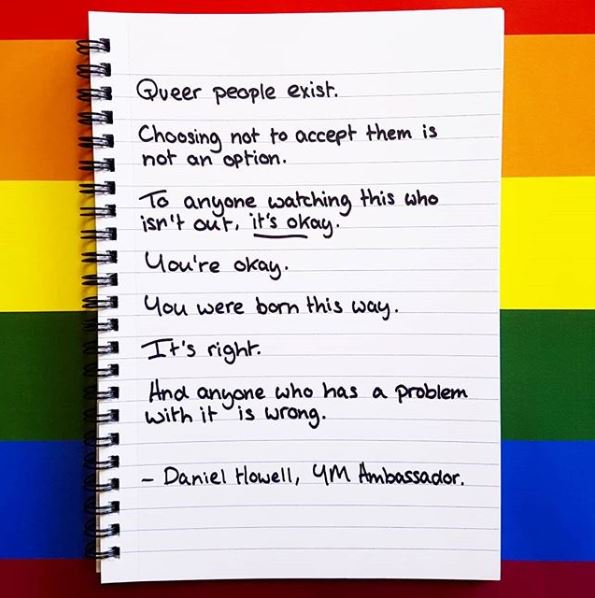 Queer people exist.
Choosing not to accept them is
not an option.
To anyone watching this who
isn't out, it's okay.
You're okay.
You were born this way.
It's right.
And anyone who has a problem
with it is wrong.
- Daniel Howell, YM Ambassador.